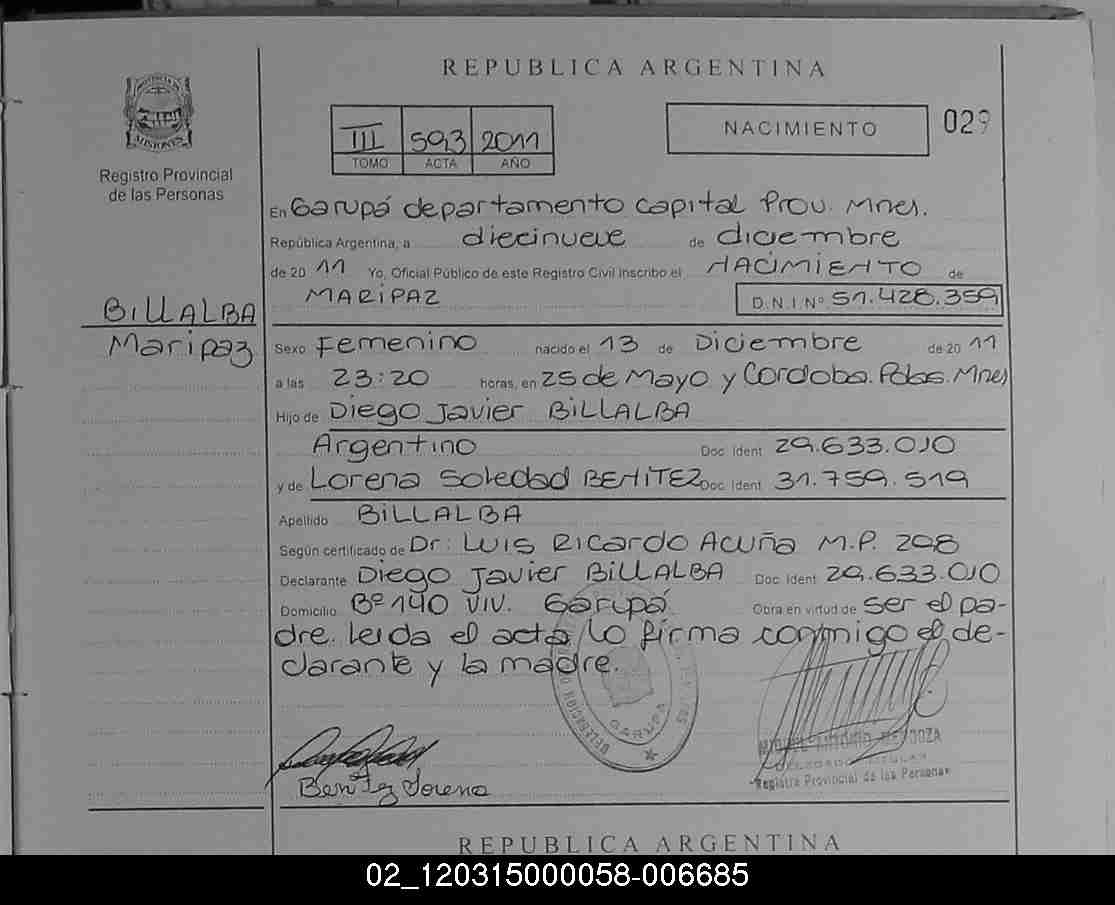 REPUBLICA ARGENTINA
MISIONES
Registro Provincial
de las Personas
III 593 2011
TOMO ACTA AÑO
NACIMIENTO
029
En Garupá departamento capital Prov. Mnes.
República Argentina, a diecinueve de diciembre
de 20 11 Yo, Oficial Público de este Registro Civil Inscribo el NACIMIENTO de
MARIPAZ D.N.I.Nº 51.428.359
BILLALBA
Maripaz
Sexo Femenino nacido el 13 de Diciembre de 20 11
a las 23:20 horas, en 25 de Mayo y Cordoba. Pdas. Mnes
Hijo de Diego Javier BILLALBA
Argentino Doc Ident 29.633.010
y de Lorena Soledad BENITEZ Doc Ident 31.759.519
Apellido BILLALBA
Según certificado de Dr: Luis Ricardo Acuña M.P. 208
Declarante Diego Javier BILLALBA Doc Ident 29.633.010
Domicilio Bº 140 VIV. Garupá Obra en virtud de ser el pa-
dre. leida el acta, lo firma conmigo el de-
clarante y la madre.
DELEGACION
GARUPA
Benitez Lorena
MIGUEL ANTONIO MENDOZA
DELEGADO TITULAR
Registro Provincial de las Personas
REPUBLICA ARGENTINA
02_120315000058-006685